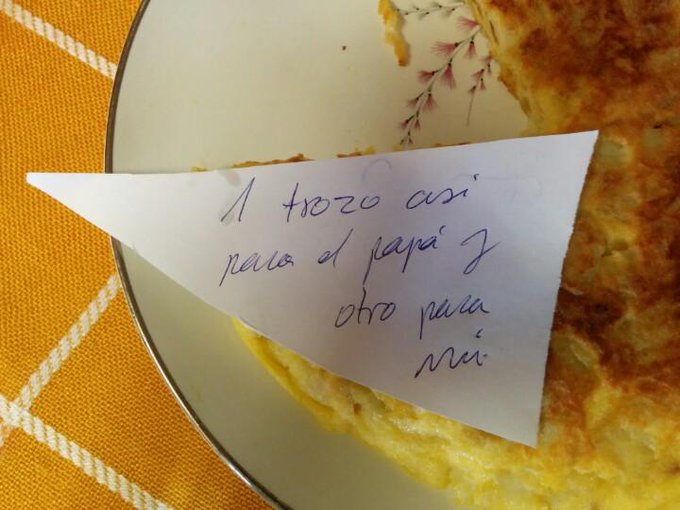 1 trozo así
para el papá y
otro para
mí.